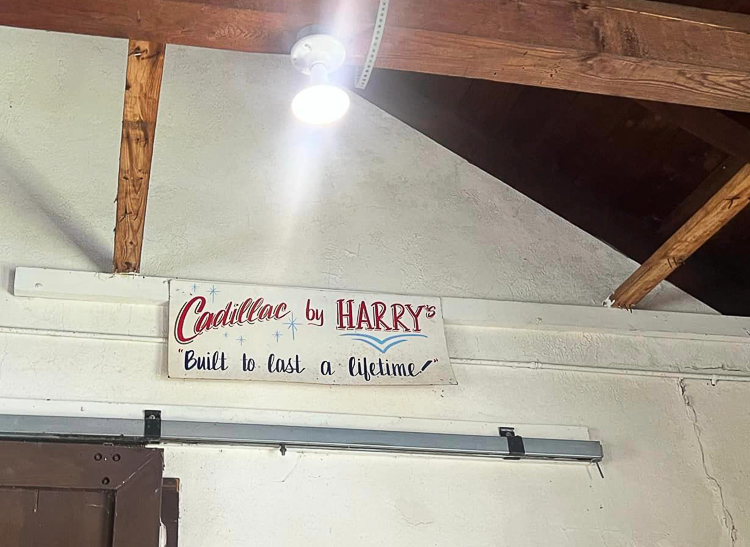 Cadillac by HARRY's
"Built to last a lifetime!"